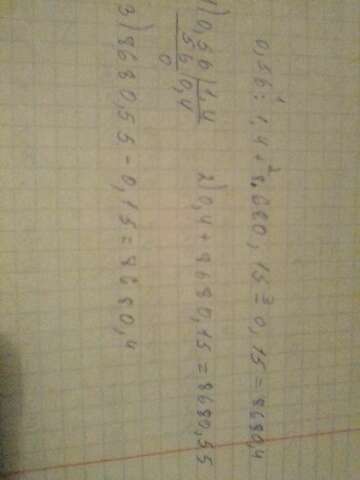 0,56 : 1,4 + 8680,15 - 0,15 = 8680,4
1) 0,56 | 1,4
56 | 0,4
0
2) 0,4 + 8680,15 = 8680,55
3) 8680,55 - 0,15 = 8680,4